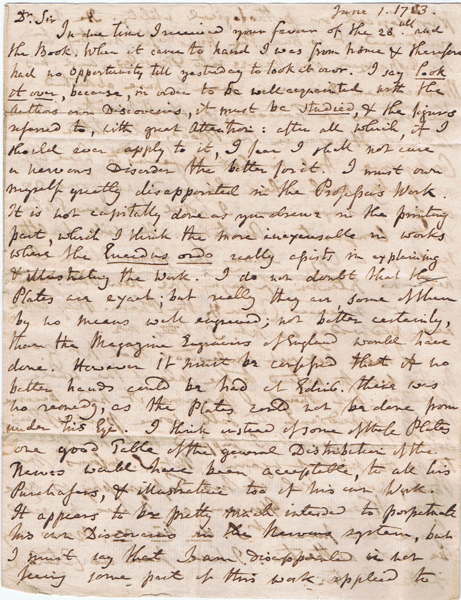 June 1. 1783.
Dr. Sir
In due time I received your favour of the 28 ult and
the Book. When it came to hand I was from home & therefore
had no opportunity till yesterday to look it over. I say look
it over, because, in order to be well acquainted with the
Authors own Discoveries, it must be studied, & the figures
referred to, with great Attention: after all which, if I
should ever apply to it, I fear I shall not cure
a nervous Disorder the better for it. I must own
myself greatly disappointed in the Professors Work.
It is not capitally done as you observe in the printing
part, which I think the more inexcusable in works
where the ordo really assists in explaining
& illustrating the Work. I do not doubt that the
Plates are exact; but really they are, some of them
by no means well engraved; not better certainly,
than the Magazine Engravers of England would have
done. However it must be confessed that if no
better hands could be had at Edinb. there was
no remedy, as the Plates could not be done from
under his Eye. I think instead of some of these Plates
one good Table of the general Distribution of the
Nerves would have been acceptable, to all his
Purchasers, & illustrative too of his own Work.
It appears to be pretty much intended to perpetuate
his own Discoveries in the Nervous system, but
I must say that I am disappointed in not
seeing some part of this work applied to